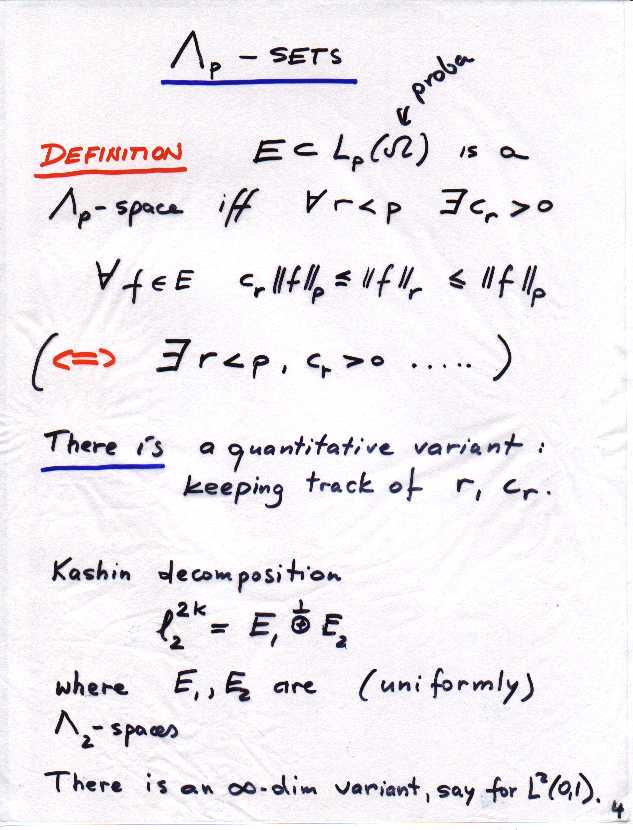 Λp - SETS
proba
DEFINITION E ⊂ Lp(Ω) is a
Λp-space iff ∀ r<p ∃ cr >0
∀ f ∈ E cr ‖f‖p ≤ ‖f‖r ≤ ‖f‖p
(<=> ∃ r<p, cr >0 .....)
There is a quantitative variant :
keeping track of r, cr.
Kashin decomposition
ℓ₂²ᵏ = E₁ ⊕^⊥ E₂
where E₁, E₂ are (uniformly)
Λ₂-spaces
There is an ∞-dim variant, say for L²(0,1).
4